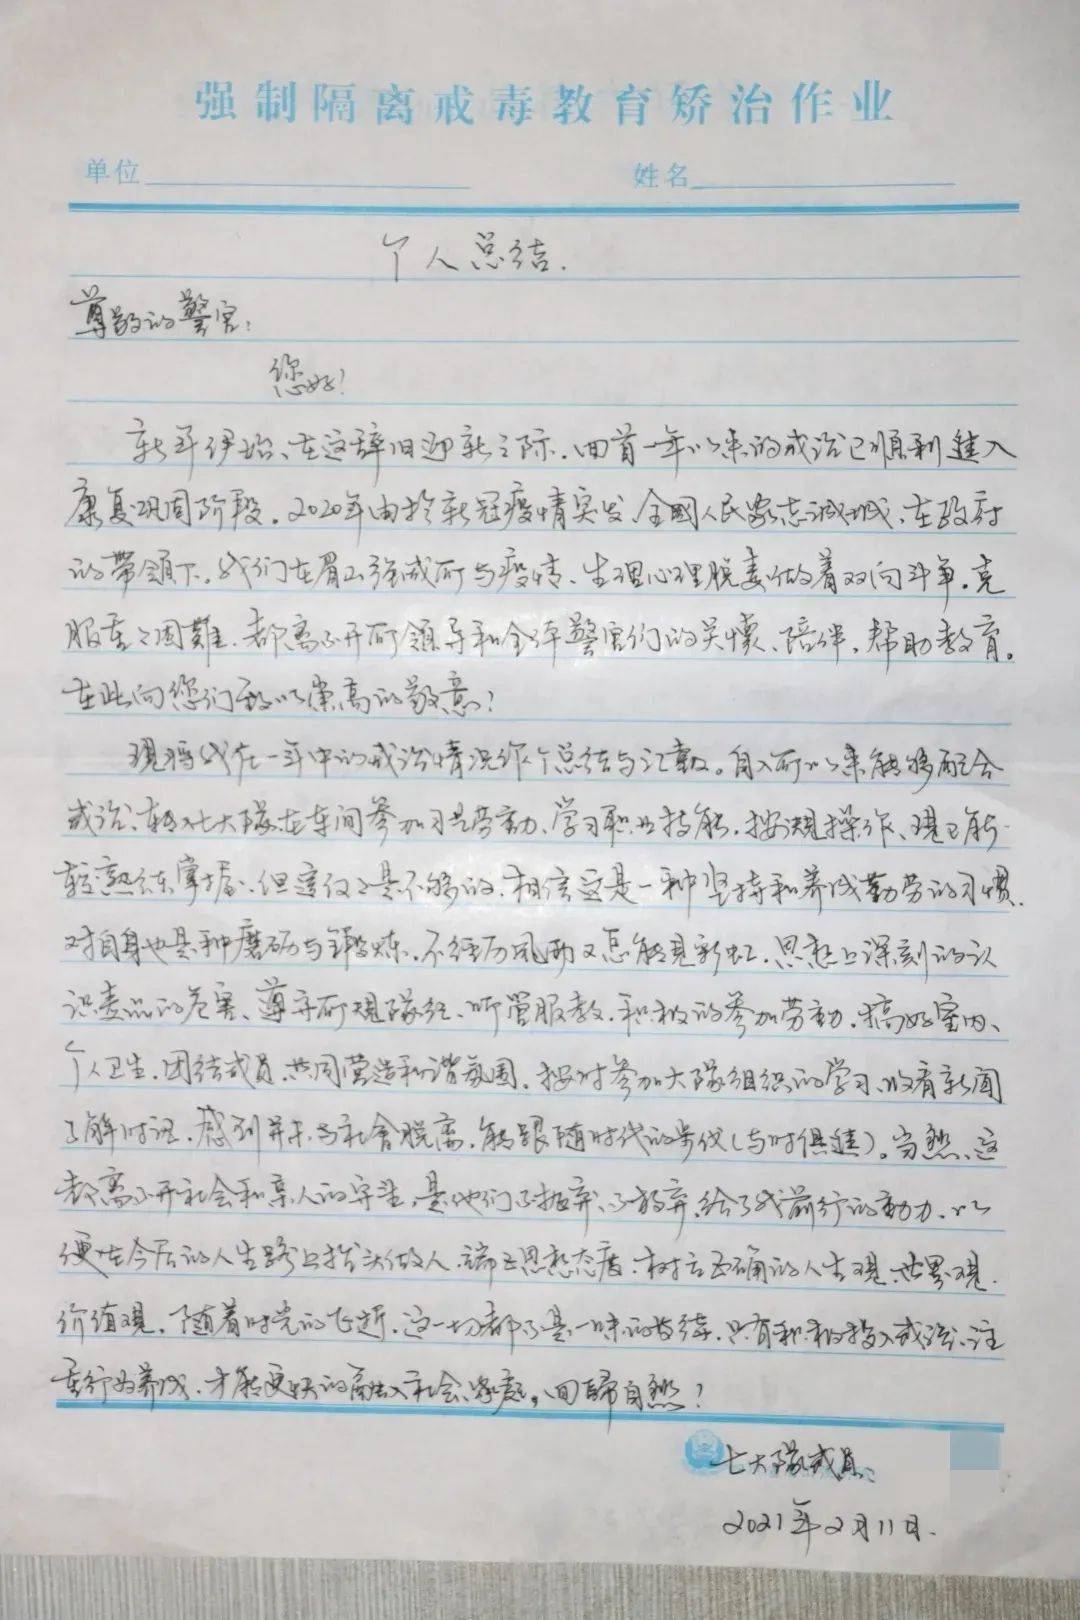 强制隔离戒毒教育矫治作业
单位 姓名
个人总结.
尊敬的警官:
您好!
新年伊始、在这辞旧迎新之际.回首一年以来的戒治已顺利进入
康复巩固阶段。2020年由于新冠疫情突发、全國人民众志诚城、在政府
的带领下。我们在眉山强戒所与疫情、生理心理脱毒做着双向斗争.克
服重々困難.都离不开所领导和全体警官们的关懷、陪伴。帮助教育。
在此向您们致以崇高的敬意!
現将我在一年中的戒治情况作个总结与汇報。自入所以来能够配合
戒治、转入七大隊在车间参加习艺劳动、学习职业技能.按規操作、現已能
较熟练掌握.但這仅々是不够的.相信这是一种坚持和养成勤劳的习惯.
对自身也是种磨砺与鍛炼.不经历风雨又怎能見彩虹.思想上深刻的认
识毒品的危害、遵守所規隊纪、听管服教.积极的参加劳动.搞好室内、
个人卫生.团结戒员.共同营造和谐氛围.按时参加大隊组织的学习.收看新闻
了解时政.感到并未与社会脱离.能跟随时代的步伐(与时俱進)。当然、这
都离不开社会和亲人的牵挂.是他们不抛弃、不放弃.给了我前行的動力.以
便在今后的人生路上抬头做人.端正思想态度.树立正确的人生观.世界观.
价值观。随着时光的飞逝.这一切都不是一味的等待.只有积极投入戒治、注
重行为养成.才能更快的融入社会家庭。回歸自然!
七大隊戒员:
2021年2月11日.